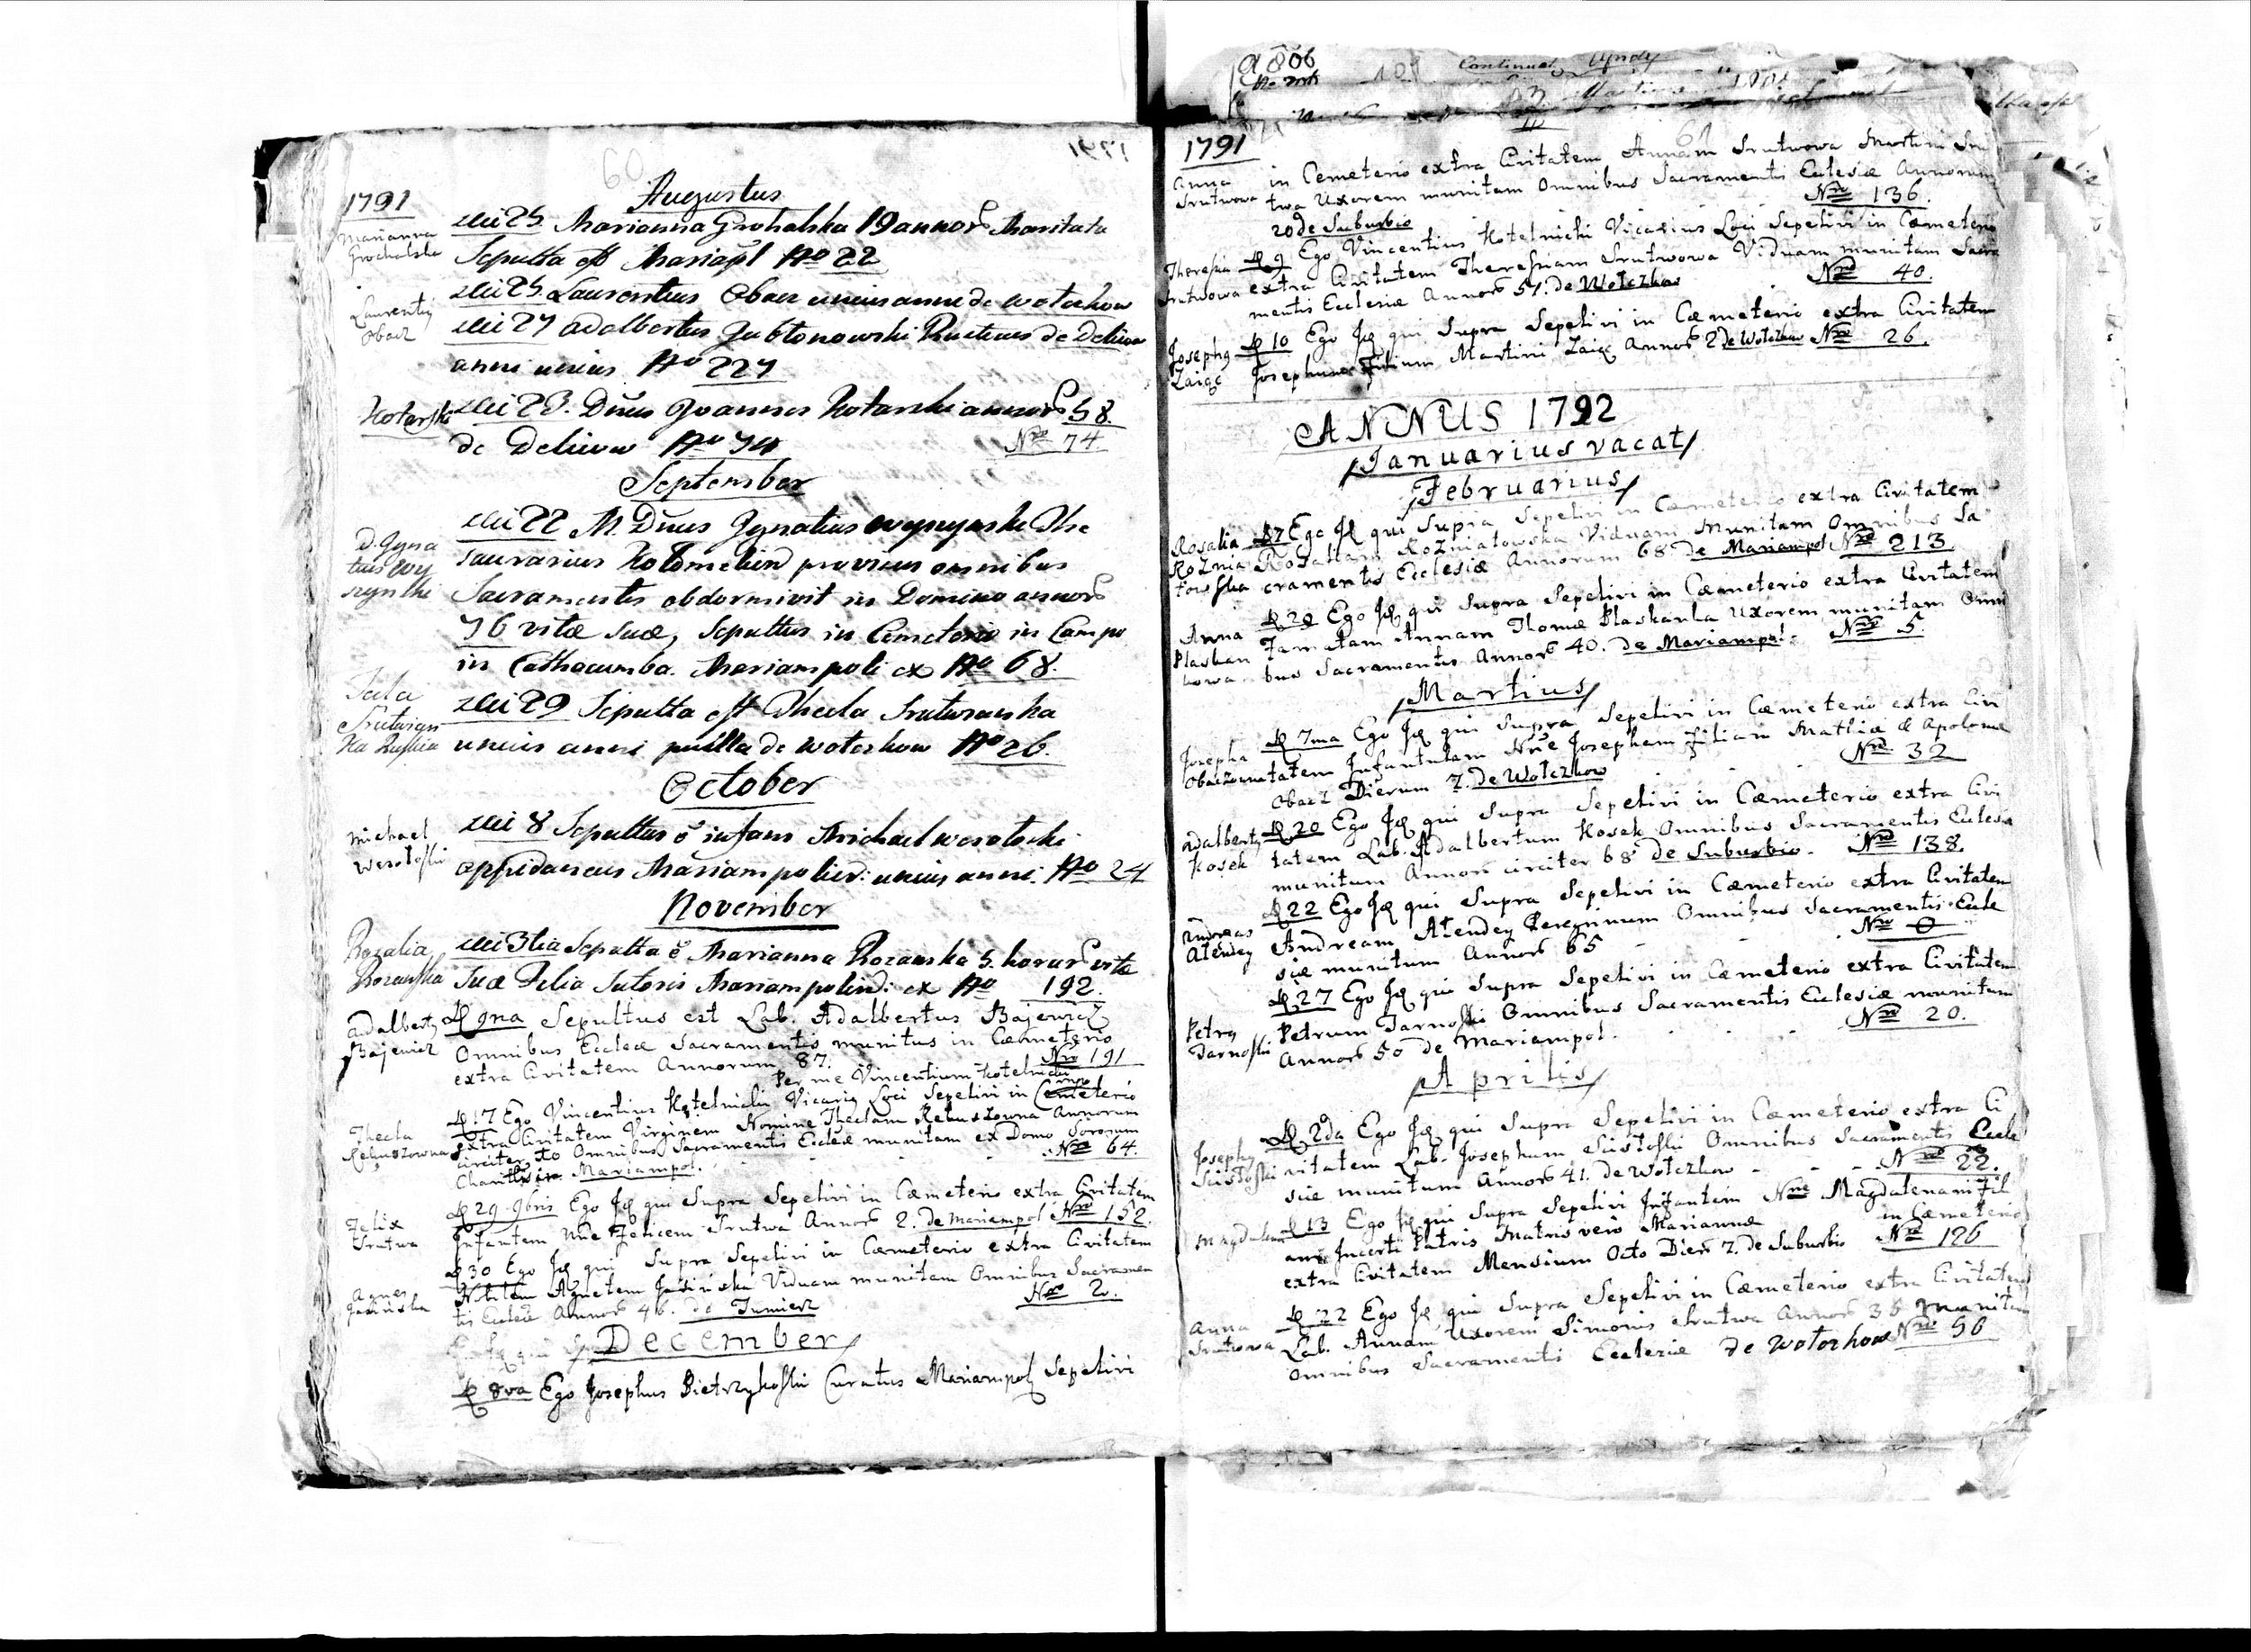 60
1791
Augustus
Marianna Grochalska
25 Marianna Grohalska 19 annor Maritata
Sepulta est Mariapl No 22
Laurenty Obacz
25 Laurentius Obacz unius anni de Wotczkow
27 Adalbertus Jabłonowski Rusticus de Deliow
anni unius No 227
Kotarski
23. Dnus Joannes Kotarski annor 58.
de Deliow No 74 Nro 74
September
22 M. Dnus Ignatius
D. Igna
saurarius provisus omnibus
Sacramentis obdormivit in Domino annor
76 vitæ suæ, Sepultus in Cemeterio in Campo
in Cathacumba. Mariampoli ex No 68.
29 Sepulta est Thecla
unius anni puella de Wotczkow No 26.
October
Michael Wesołoski
8 Sepultus ē infans Michael Wesołoski
oppidaneus Mariampolien: unius anni. No 24
November
Rozalia
3tia Sepulta ē Marianna 5. horar vitæ
suæ Filia Sutoris Mariampolien: ex No 192.
Adalberty Bajewicz
D 9na Sepultus est Lab. Adalbertus Bajewicz
Omnibus Eccleæ Sacramentis munitus in Cæmeterio
extra Civitatem Annorum 87. Nro 191
Per me Vincentium Kotelnicki
D 17 Ego Vincentius Kotelnicki Vicariy Loci Sepelivi in Cemeterio
Thecla
extra Civitatem Virginem Nomine Theclam Annorum
circiter Omnibus Sacramentis Eccleæ munitam ex Domo Sororum
Charitis in Mariampol. Nro 64.
Felix Srutwa
D 29 9bris Ego Jd qui Supra Sepelivi in Cæmeterio extra Civitatem
Infantem Nne Felicem Srutwa Annor 2. de Mariampol Nro 152.
D 30 Ego Jd qui Supra Sepelivi in Cæmeterio extra Civitatem
Agnes Jasińska
Agnetem Jasińska Viduam munitam Omnibus Sacramen
tis Eccleæ Annor 46. de Tumierz Nro 2.
December
D 8va Ego Josephus Pietrzykoski Curatus Mariampol Sepelivi
1791
Anna Srutwowa
in Cemeterio extra Civitatem Annam Srutwowa Martini Sru
twa Uxorem munitam Omnibus Sacramentis Eclesiæ Annorum
20 de Suburbio Nro 136.
Theresia Srutwowa
D 9 Ego Vincentius Kotelnicki Vicarius Loci Sepelivi in Cæmeterio
extra Civitatem Theresiam Srutwowa Viduam munitam Sacra
mentis Ecclesiæ Annor 51. de Wotczkow Nro 40.
Josephy Zaiąc
D 10 Ego Jd qui Supra Sepelivi in Cæmeterio extra Civitatem
Josephum Filium Martini Zaiąc Annor 2 de Wotczkow Nro 26.
ANNUS 1792
Januarius vacat
Februarius
Rosalia Rozniatowska
Ego Jd qui Supra Sepelivi in Cæmeterio extra Civitatem
Rosaliam Rozniatowska Viduam Munitam Omnibus Sa
cramentis Ecclesiæ Annorum 68 de Mariampol Nro 213
Anna Plaskankowa
Ego Jd qui Supra Sepelivi in Cæmeterio extra Civitatem
Famatam Annam Thomæ Plaskanka Uxorem munitam Omni
bus Sacramentis Annor 40. de Mariampol. Nro 5.
Martius
Josepha Obaczowna
D 7ma Ego Jd qui Supra Sepelivi in Cæmeterio extra Civi
tatem Infantulam Nne Josepham Filiam Mathiæ & Apoloniæ
Obacz Dierum 7. de Wotczkow Nro. 32
Adalberty Kosek
D 20 Ego Jd qui Supra Sepelivi in Cæmeterio extra Civi
tatem Lab. Adalbertum Kosek Omnibus Sacramentis Eclesiæ
munitum Annor circiter 68 de Suburbio. Nro 138.
Andreas Atendey
D 22 Ego Jd qui Supra Sepelivi in Cæmeterio extra Civitatem
Andream Atendey Peregrinum Omnibus Sacramentis Eccle
siæ munitum Annor 65 Nro 0
Petry Tarnoski
D 27 Ego Jd qui Supra Sepelivi in Cæmeterio extra Civitatem
Petrum Tarnoski Omnibus Sacramentis Eclesiæ munitum
Annor 50 de Mariampol. Nro 20.
Aprilis
Josephy
D 2da Ego Jd qui Supra Sepelivi in Cæmeterio extra Ci
vitatem Lab. Josephum Omnibus Sacramentis Eccle
siæ munitum Annor 41. de Wotczkow Nro 22.
Magdalena
D 13 Ego Jd qui Supra Sepelivi Infantem Nne Magdalenam Fil
am Incerti Patris Matris vero Mariannæ in Cæmeterio
extra Civitatem Mensium Octo Dier 7. de Suburbio Nro 126
Anna Srutwowa
D 22 Ego Jd qui Supra Sepelivi in Cæmeterio extra Civitatem
Lab. Annam Uxorem Simonis Srutwa Annor 35 munitam
Omnibus Sacramentis Ecclesiæ de Wotczkow Nro 56